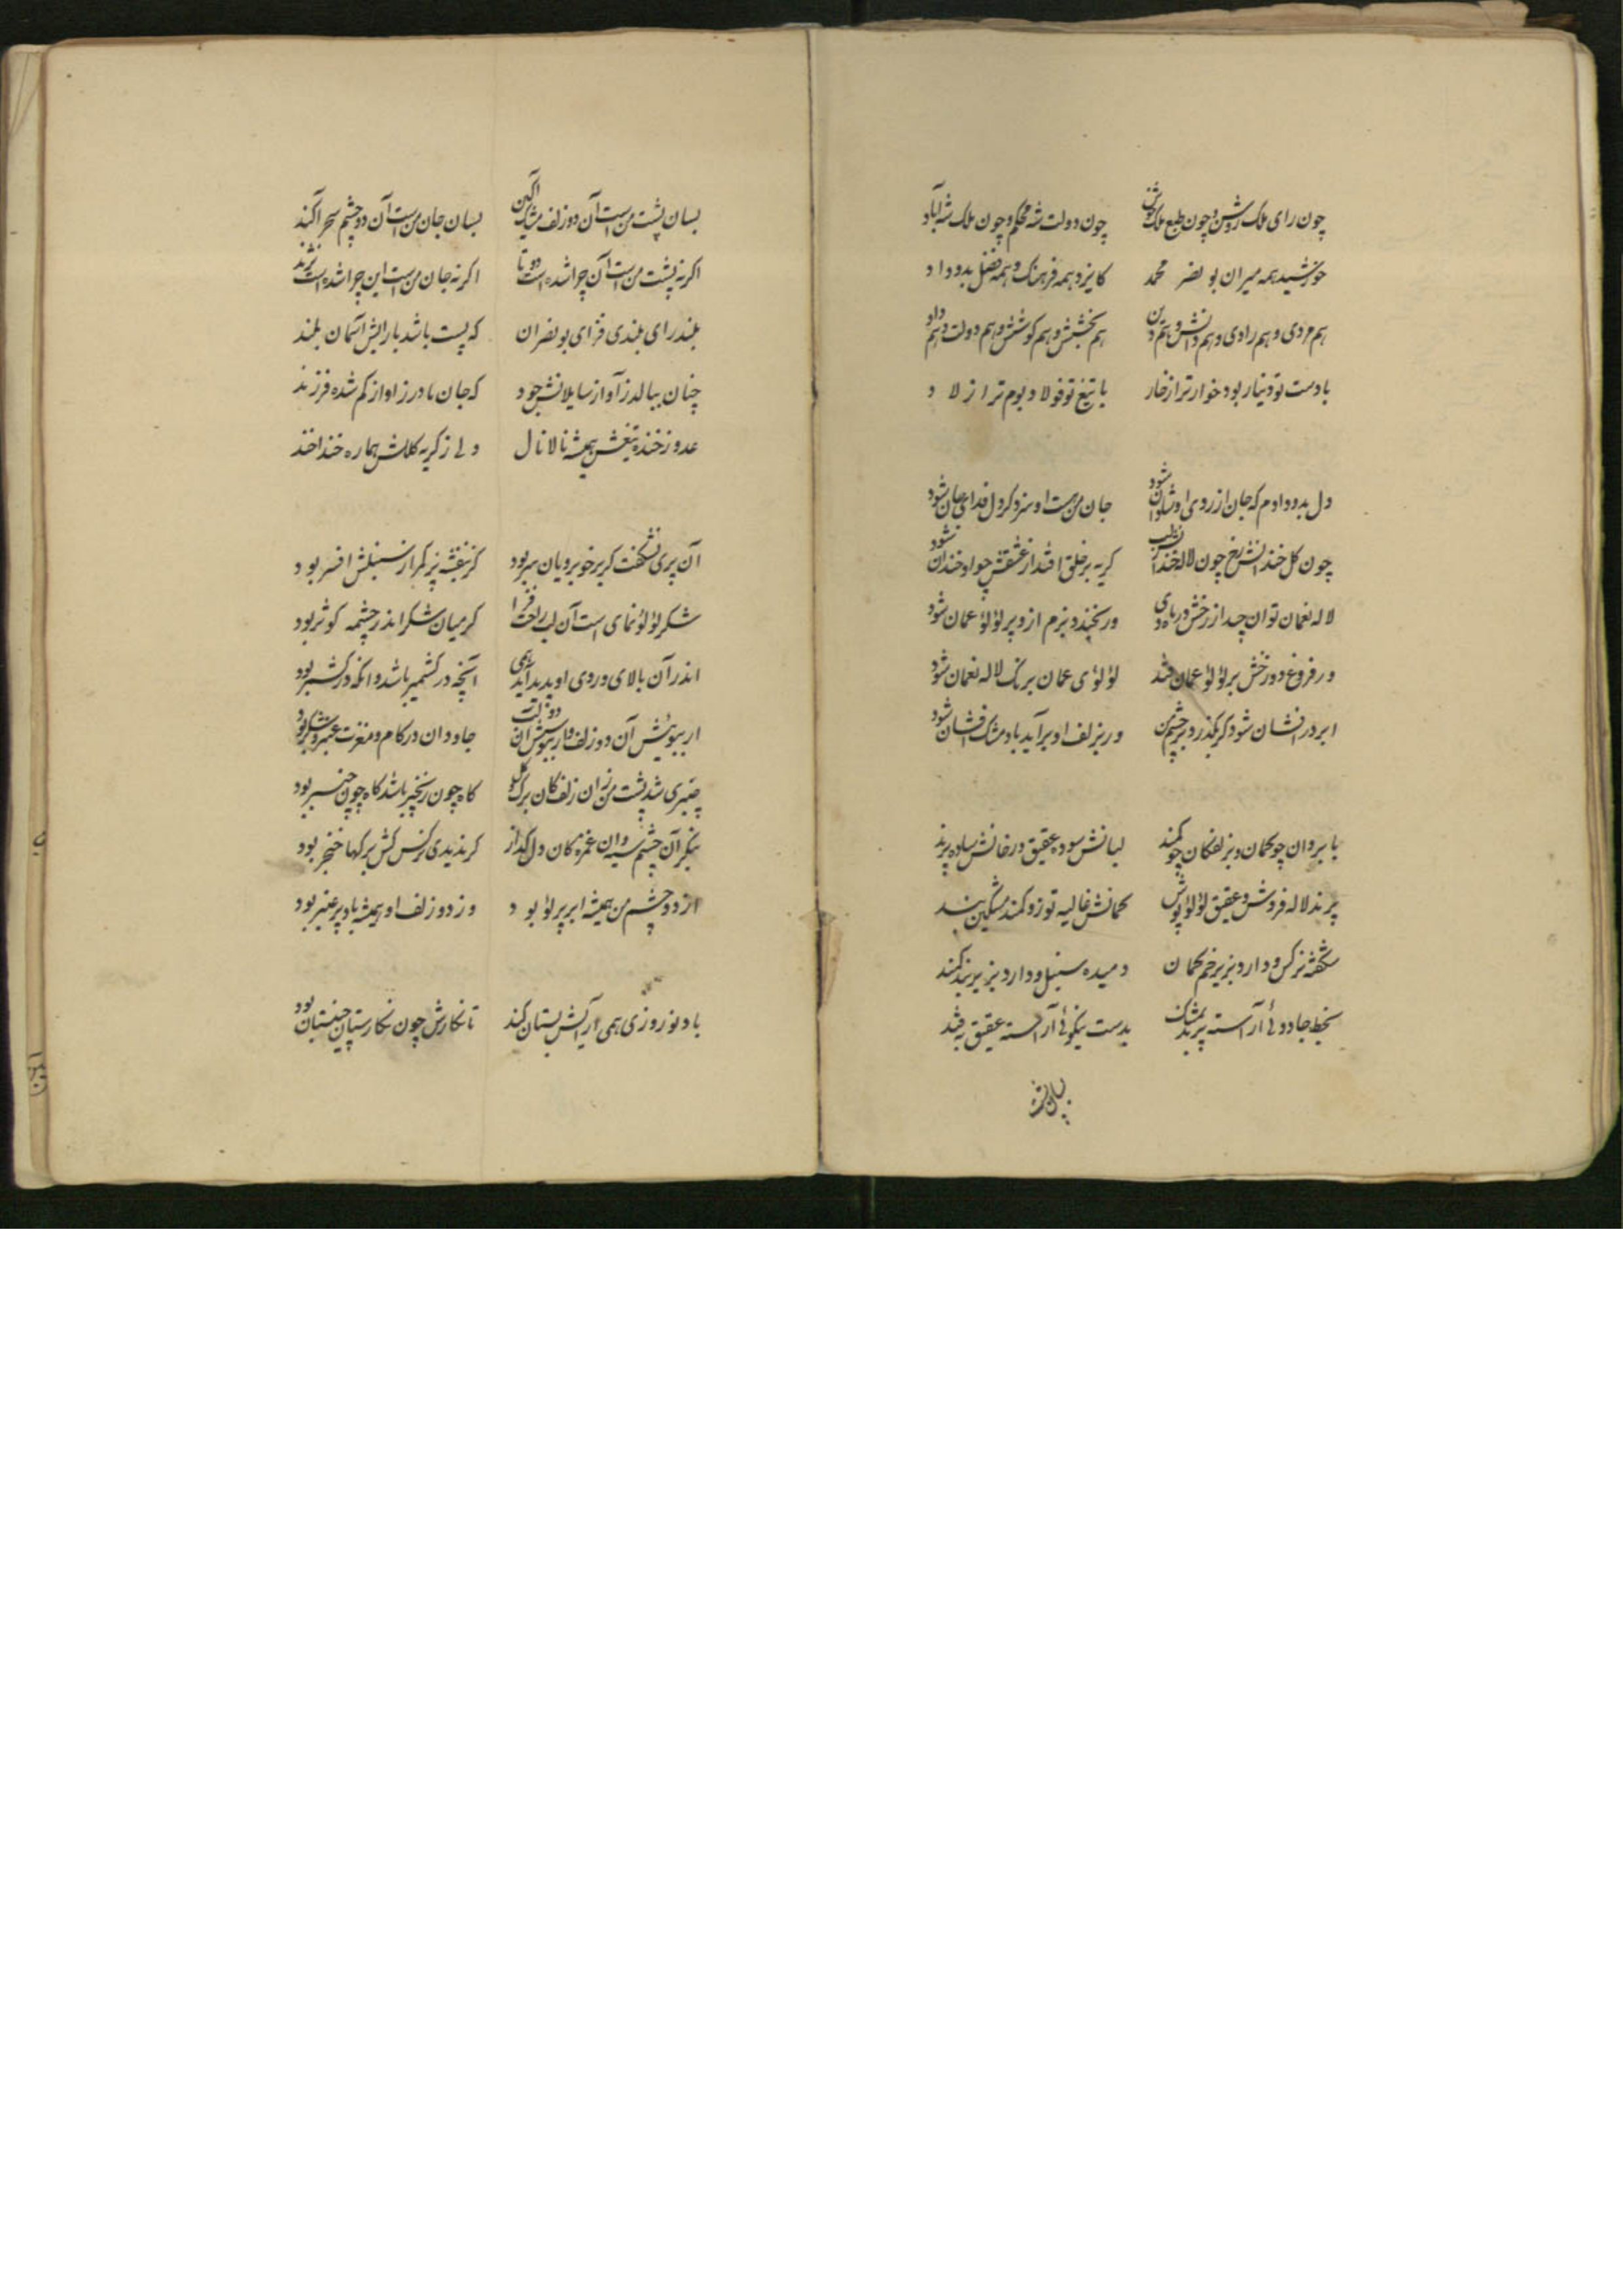 چون رای ملک روشن و چون طبع ملک خوش چون دولت شه محکم و چون ملک شه آباد
خورشید همه میران بو نصر محمد کایزد همه فرهنک و همه فضل بدو داد
هم مردی و هم رادی و هم دانش و هم دین هم بخشش و هم کوشش و هم دولت و هم داد
با دست تو دینار بود خوارتر از خار با تیغ تو فولاد بود نرم تر از لاد
دل بدو دادم که جان از روی او شادان شود جان من هست او سزد کر دل فدای جان شود
چون کل خندانش رخ چون لاله خندانش لب کریه بر خلق افتد از عشقش چو او خندان شود
لاله نعمان توان چید از رخش در ماه دی ور بخندد بزم ازو پر لؤلؤ عمان شود
ور فروغ دو رخش بر لؤلؤ عمان فتد لؤلؤی عمان برنک لاله نعمان شود
ابر در افشان شود کر بکذرد بر چشم من ور بزلف او برآید باد مشک افشان شود
بابروان چو کمان و بزلفکان چو کمند لبانش سوده عقیق و رخانش ساده پرند
پرند لاله فروش و عقیق لؤلؤ پوش کمانش غالیه توز و کمند مشکین بند
شکفته نرکس دارد بزیر خم کمان دمیده سنبل دارد بزیر بند کمند
بخط جادوئی آراسته پرند بمشک بدست نیکوئی آراسته عقیق بقند
بسان پشت
بسان پشت من است آن دو زلف مشک آکین بسان جان من است آن دو چشم سحر آکند
اکر نه پشت من است آن چرا شده است دو تا اکر نه جان من است این چرا شده است نژند
بلند رای بلندی فزای بو نصر آن که پست باشد با رایش آسمان بلند
چنان ببالد ز آواز سایلانش جود که جان مادر ز آواز کم شده فرزند
عدو ز خنده تیغش همیشه نالانال ولی ز کریه کلکش هماره خنداخند
آن پری نشکفت کر بر خوبرویان سر بود کز بنفشه بر کمر از سنبلش افسر بود
شکر لؤلؤ نمای است آن لب راحت فزا کر میان شکر اندر چشمه کوثر بود
اندر آن بالای و روی او پدید آید همی آنچه در کشمیر باشد وانکه در کشمر بود
ار ببوئیش آن دو زلف و ار ببوسیش آن دو لب جاودان در کام و مغزت عنبر و شکر بود
چنبری شد پشت من زان زلفکان کاه چون زنجیر باشد کاه چون چنبر بود
بنکر آن چشم سیه وان غمزه کان دل کداز کر ندیدی نرکس کش برکها خنجر بود
از دو چشم من همیشه ابر پر لؤلؤ بود وز دو زلف او همیشه باد پر عنبر بود
باد نوروزی همی آرایش بستان کند تا نکارش چون نکارستان چینستان بود